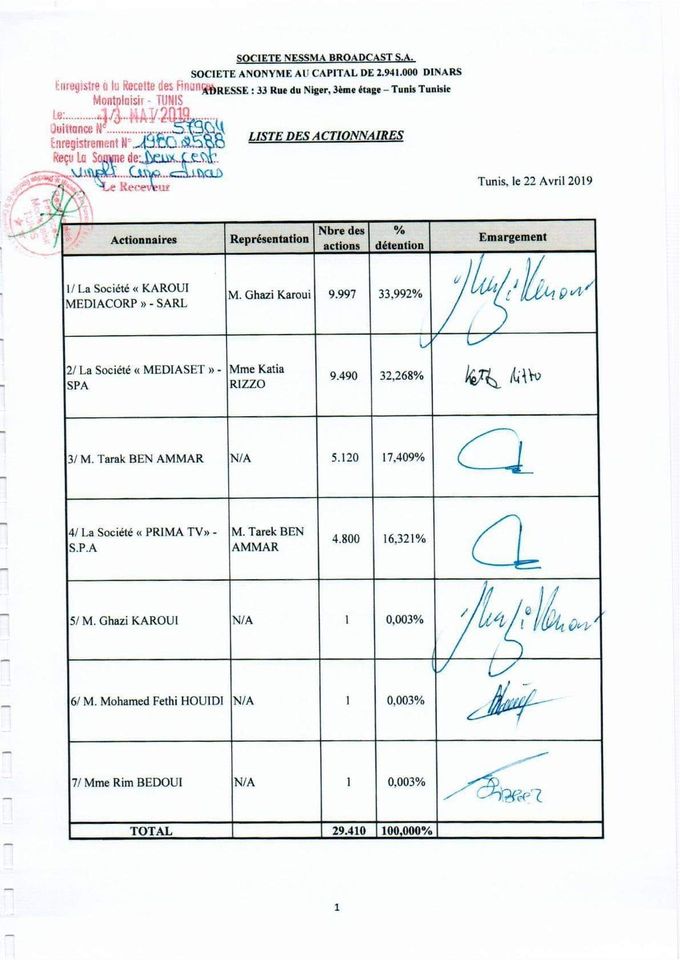 SOCIETE NESSMA BROADCAST S.A.
SOCIETE ANONYME AU CAPITAL DE 2.941.000 DINARS
ADRESSE : 33 Rue du Niger, 3ème étage – Tunis Tunisie
Enregistre à la Recette des Finances
Montplaisir - TUNIS
Le: 13 MAI 2019
Quittance N° 57904
Enregistrement N°
Reçu La Somme de: Deux cent
vingt cinq dinars
Le Receveur
LISTE DES ACTIONNAIRES
Tunis, le 22 Avril 2019
Actionnaires Représentation Nbre des actions % détention Emargement
1/ La Société « KAROUI MEDIACORP » - SARL M. Ghazi Karoui 9.997 33,992%
2/ La Société « MEDIASET » - SPA Mme Katia RIZZO 9.490 32,268%
3/ M. Tarak BEN AMMAR N/A 5.120 17,409%
4/ La Société « PRIMA TV» - S.P.A M. Tarek BEN AMMAR 4.800 16,321%
5/ M. Ghazi KAROUI N/A 1 0,003%
6/ M. Mohamed Fethi HOUIDI N/A 1 0,003%
7/ Mme Rim BEDOUI N/A 1 0,003%
TOTAL 29.410 100,000%
1